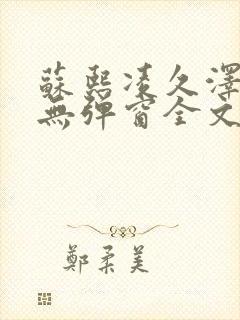 蘇熙凌久澤
無彈窗全文
鄭柔美